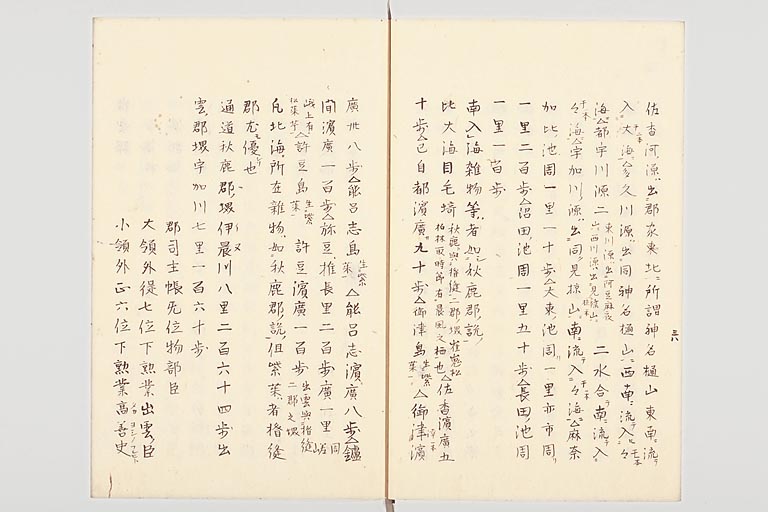 佐香河源出郡家東北所謂神名樋山東南流
入大海多久川源出同神名樋山西南流入々
海都宇川源二 東川源出阿豆麻夜山西川源出見椋山 二水合南流入
々海宇加川源出同見椋山南流入々海麻奈
加比池周一里一十歩大東池周一里亦市周
一里二百歩沼田池周一里五十歩長田池周
一里一百歩
南入海雑物等者如秋鹿郡説
比大海目毛埼 秋鹿與楯縫二郡堺 松柏林 時節有晨風之栖也 佐香濱廣五
十歩己自都濱廣九十歩御津島 生紫菜 御津濱
廣卅八歩能呂志島 生紫菜 能呂志濱廣八歩鎌
間濱廣一百歩於豆推長里二百歩廣一里 周
上有松菜芋 許豆島 生紫菜 許豆濱廣一百歩 出雲與楯縫二郡之堺
凡北海所在雑物如秋鹿郡説但紫菜者楯縫
郡尤優也
通道秋鹿郡堺伊農川八里二百六十四歩出
雲郡堺宇加川七里一百六十歩
郡司主帳无位物部臣
大領外従七位下勲業出雲臣
小領外正六位下勲業高善史
三六